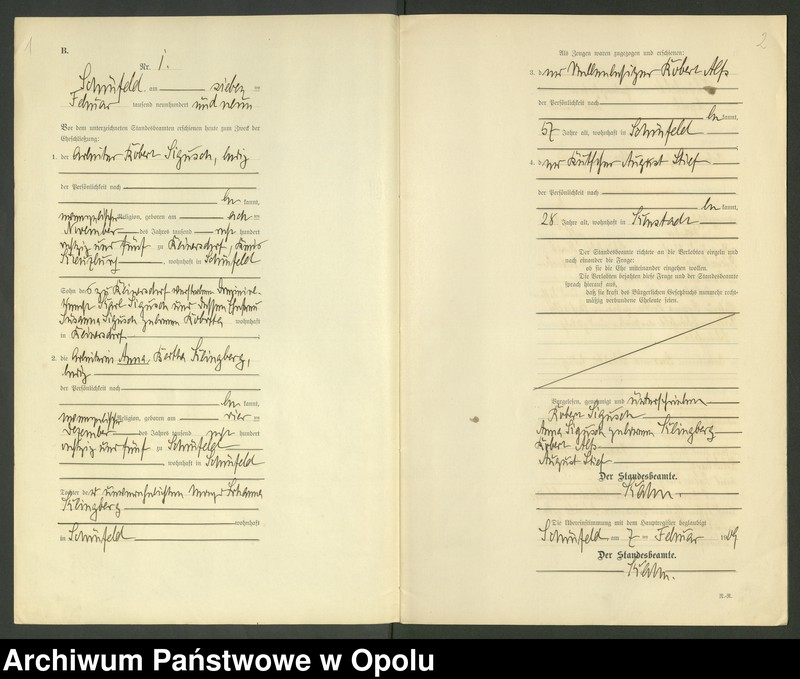 1
B.
Nr. 1.
Schönfeld am sieben ten
Februar tausend neunhundert und neun
Vor dem unterzeichneten Standesbeamten erschienen heute zum Zweck der
Eheschließung:
1. der Arbeiter Robert Sigusch, ledig
der Persönlichkeit nach
be kannt,
evangelischer Religion, geboren am ach ten
November des Jahres tausend acht hundert
achtzig und fünf zu Kleinersdorf, Kreis
Kreuzburg, wohnhaft in Schönfeld
Sohn des zu verstorbenen
Karl Sigusch und dessen Ehefrau
Susanna Sigusch geborenen wohnhaft
in
2. die Arbeiterin Anna Klingberg,
ledig
der Persönlichkeit nach
be kannt,
evangelischer Religion, geboren am vier ten
Dezember des Jahres tausend acht hundert
achtzig und fünf zu Schönfeld
wohnhaft in Schönfeld
Tochter der unverehelichten Johanna
Klingberg
wohnhaft
in Schönfeld
2
Als Zeugen waren zugezogen und erschienen:
3. der Stellenbesitzer Robert Alst
der Persönlichkeit nach
be kannt,
57 Jahre alt, wohnhaft in Schönfeld
4. der Kutscher August Stief
der Persönlichkeit nach
be kannt,
28 Jahre alt, wohnhaft in Konstadt
Der Standesbeamte richtete an die Verlobten einzeln und
nach einander die Frage:
ob sie die Ehe miteinander eingehen wollen.
Die Verlobten bejahten diese Frage und der Standesbeamte
sprach hierauf aus,
daß sie kraft des Bürgerlichen Gesetzbuchs nunmehr recht-
mäßig verbundene Eheleute seien.
Vorgelesen, genehmigt und unterschrieben
Robert Sigusch
Anna Sigusch geborene Klingberg
Robert Alst
August Stief
Der Standesbeamte.
Kalm.
Die Übereinstimmung mit dem Hauptregister beglaubigt
Schönfeld, am 7 ten Februar 1909
Der Standesbeamte.
Kalm.
R.-R.
Archiwum Państwowe w Opolu